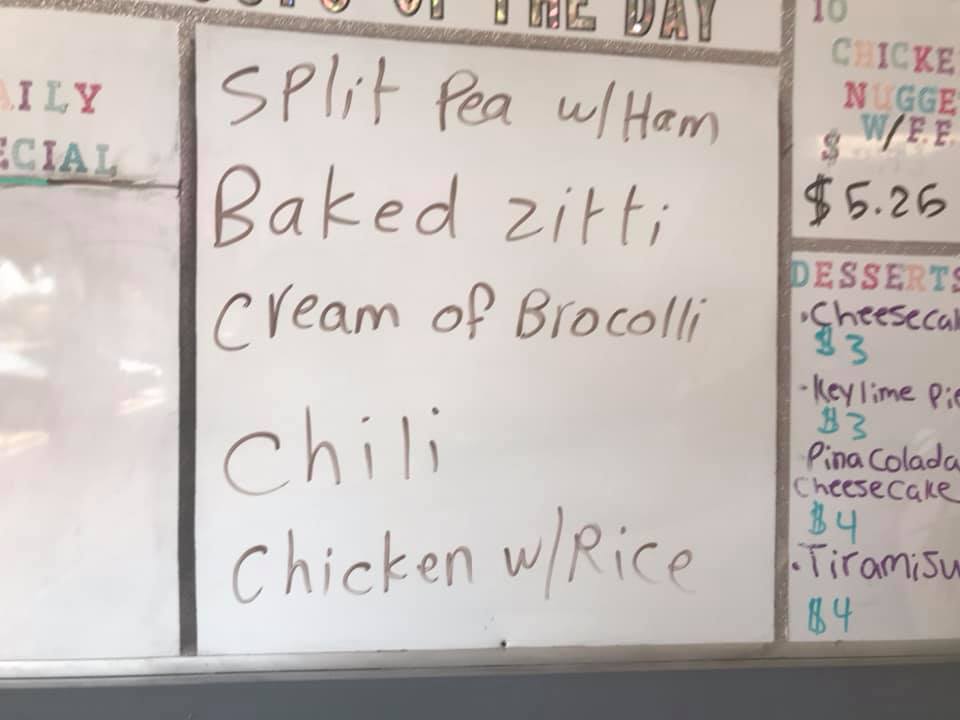 OF THE DAY
Split Pea w/Ham
Baked zitti
Cream of Brocolli
Chili
Chicken w/Rice
AILY
ECIAL
10
CHICKE
NUGGE
W/F.F.
$
$5.25
DESSERTS
•Cheesecak
$3
-Key lime Pie
$3
Pina Colada
cheesecake
$4
•Tiramisu
$4